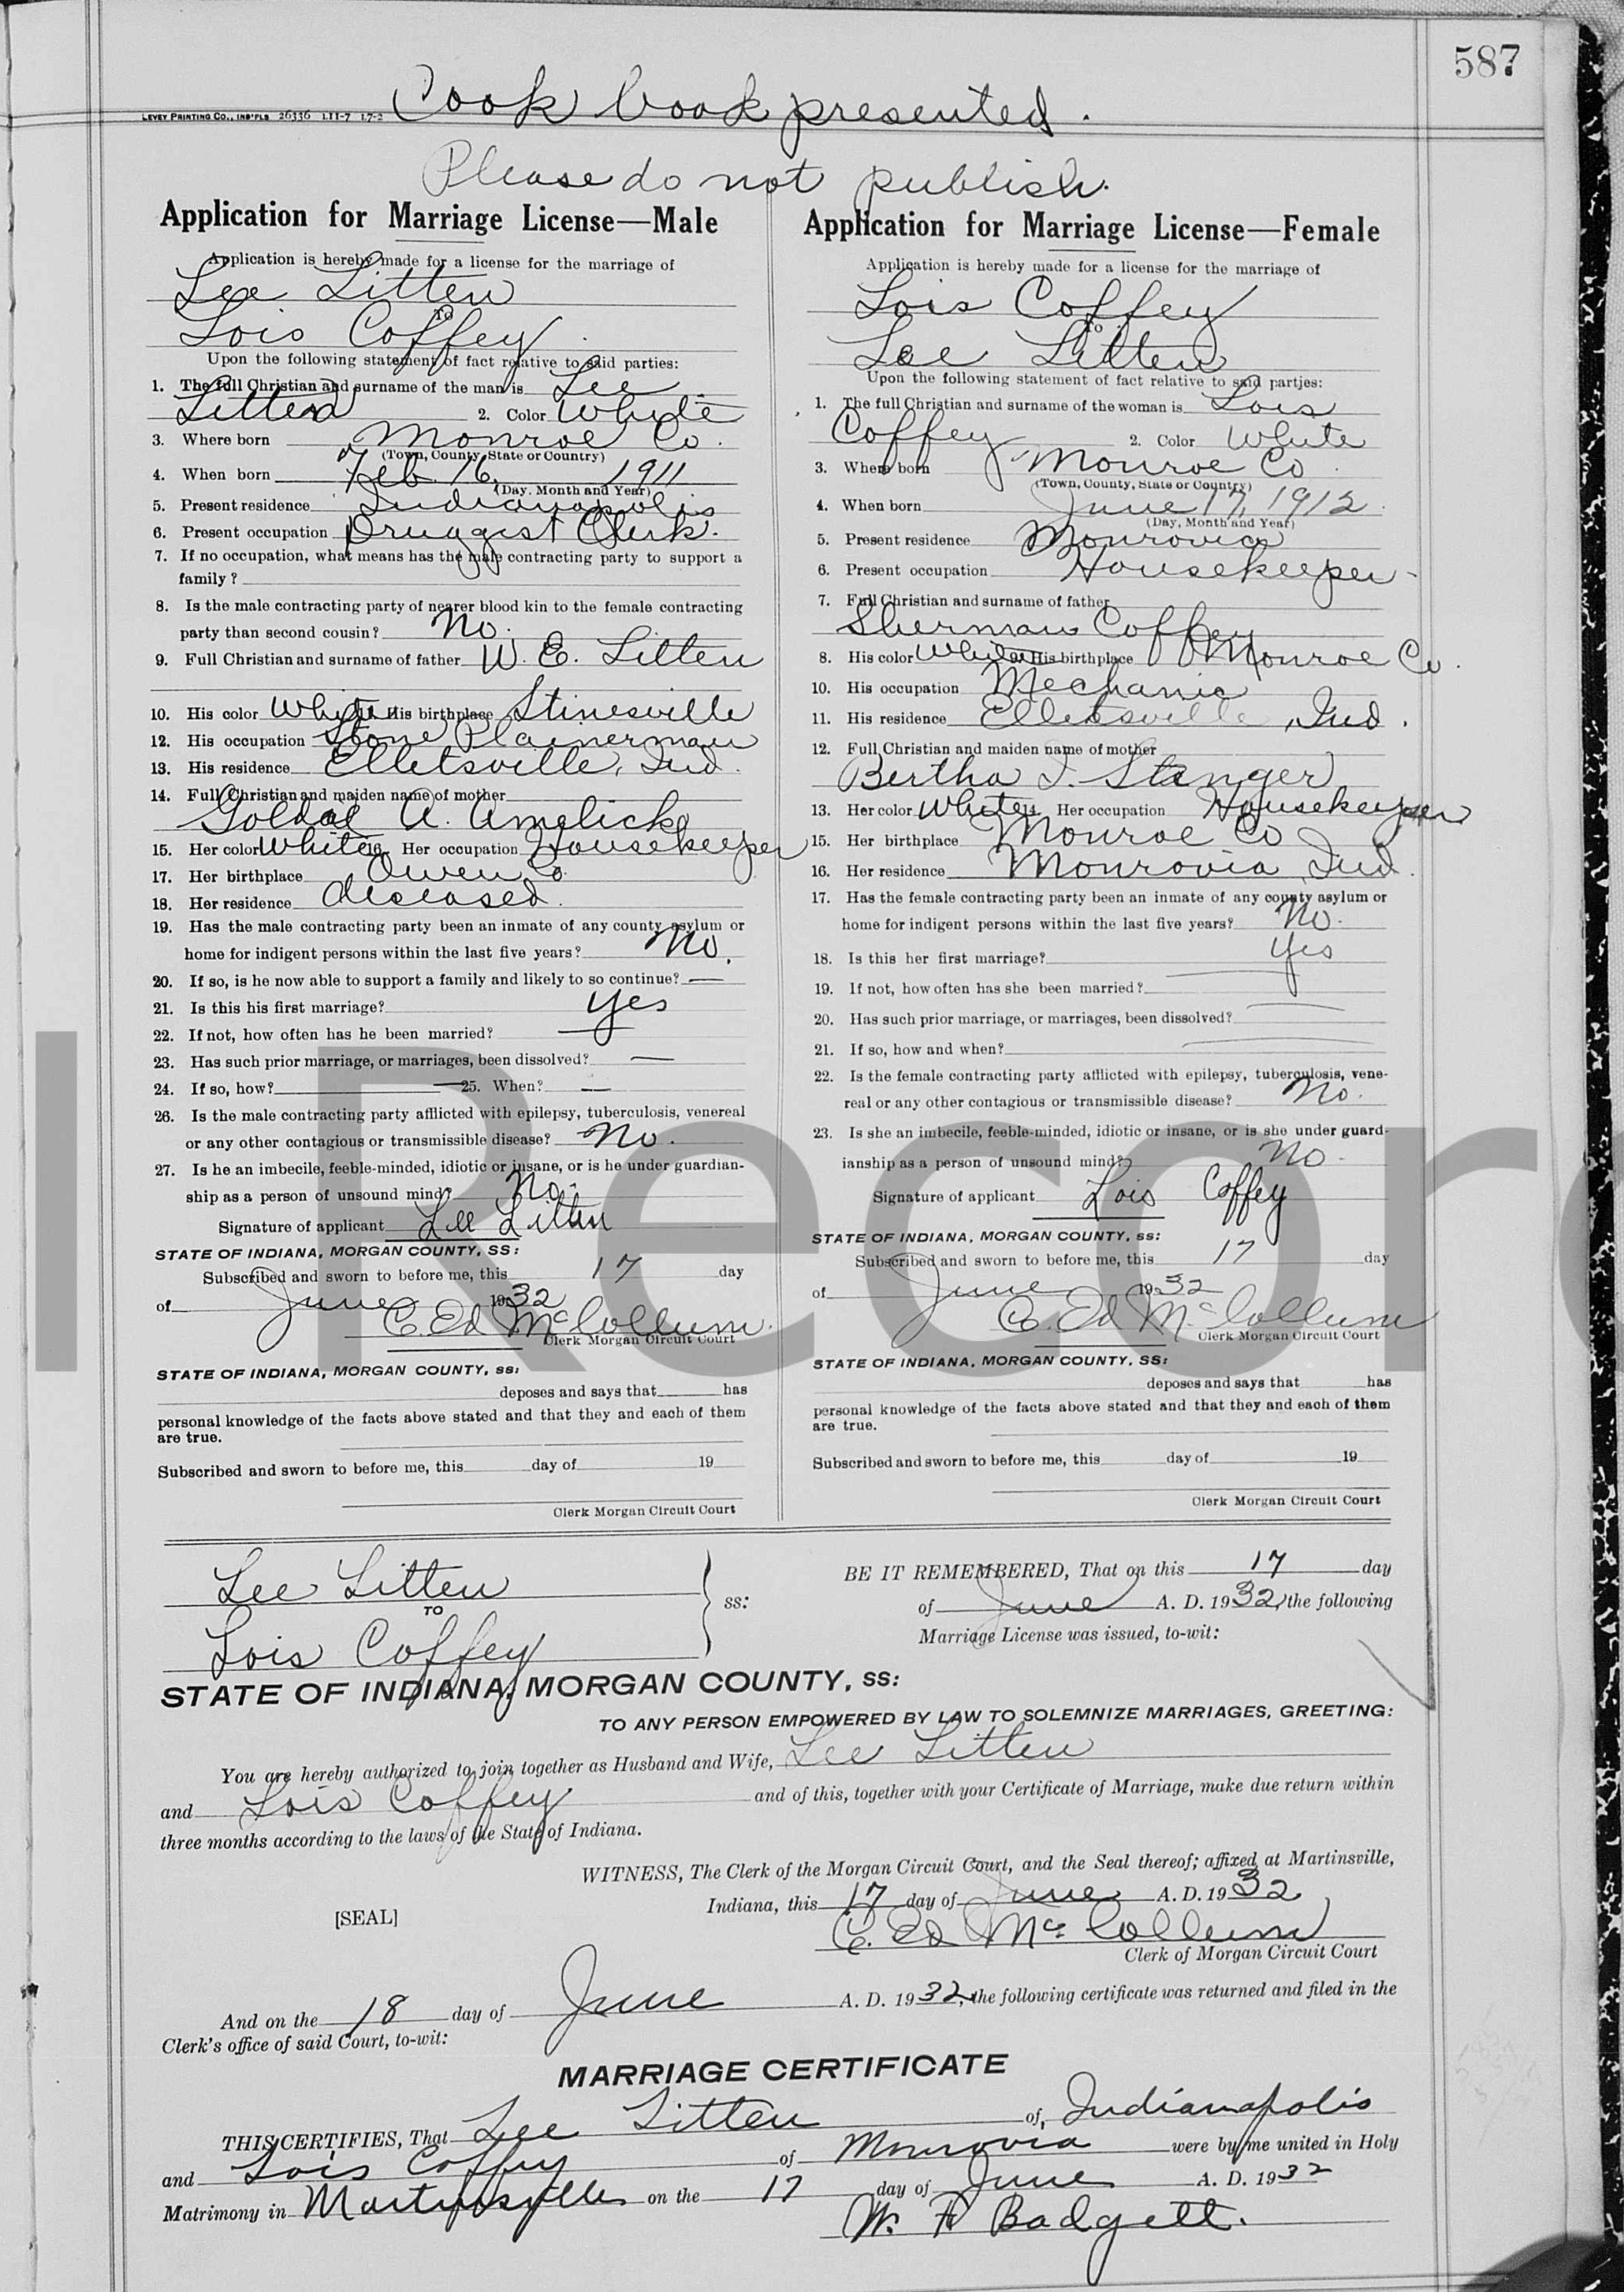 587
LEVEY PRINTING CO., IND'PLS 26336 LII-7 17-2
Cook book presented.
Please do not publish.
Application for Marriage License—Male
Application is hereby made for a license for the marriage of
Lee Litten
TO
Lois Coffey
Upon the following statement of fact relative to said parties:
1. The full Christian and surname of the man is Lee
Litten 2. Color White
3. Where born Monroe Co.
(Town, County, State or Country)
4. When born Feb. 16, 1911
(Day, Month and Year)
5. Present residence Indianapolis
6. Present occupation Druggist Clerk.
7. If no occupation, what means has the male contracting party to support a
family?
8. Is the male contracting party of nearer blood kin to the female contracting
party than second cousin? No.
9. Full Christian and surname of father W. E. Litten
10. His color White His birthplace Stinesville
12. His occupation Stone Plainerman
13. His residence Elletsville, Ind.
14. Full Christian and maiden name of mother
A. Amelick
15. Her color White 16. Her occupation Housekeeper
17. Her birthplace Owen Co.
18. Her residence deceased.
19. Has the male contracting party been an inmate of any county asylum or
home for indigent persons within the last five years? No.
20. If so, is he now able to support a family and likely to so continue? —
21. Is this his first marriage? yes
22. If not, how often has he been married? —
23. Has such prior marriage, or marriages, been dissolved? —
24. If so, how? — 25. When? —
26. Is the male contracting party afflicted with epilepsy, tuberculosis, venereal
or any other contagious or transmissible disease? No.
27. Is he an imbecile, feeble-minded, idiotic or insane, or is he under guardian-
ship as a person of unsound mind? No.
Signature of applicant Lee Litten
STATE OF INDIANA, MORGAN COUNTY, SS:
Subscribed and sworn to before me, this 17 day
of June 1932
C. Ed McCollum.
Clerk Morgan Circuit Court
STATE OF INDIANA, MORGAN COUNTY, ss:
deposes and says that has
personal knowledge of the facts above stated and that they and each of them
are true.
Subscribed and sworn to before me, this day of 19
Clerk Morgan Circuit Court
Application for Marriage License—Female
Application is hereby made for a license for the marriage of
Lois Coffey
TO
Lee Litten
Upon the following statement of fact relative to said parties:
1. The full Christian and surname of the woman is Lois
Coffey 2. Color White
3. Where born Monroe Co.
(Town, County, State or Country)
4. When born June 17, 1912.
(Day, Month and Year)
5. Present residence Monrovia
6. Present occupation Housekeeper
7. Full Christian and surname of father
Sherman Coffey
8. His color White 9. His birthplace Monroe Co.
10. His occupation Mechanic
11. His residence Elletsville, Ind.
12. Full Christian and maiden name of mother
Bertha I. Stanger
13. Her color White 14. Her occupation Housekeeper
15. Her birthplace Monroe Co
16. Her residence Monrovia, Ind.
17. Has the female contracting party been an inmate of any county asylum or
home for indigent persons within the last five years? No.
18. Is this her first marriage? Yes
19. If not, how often has she been married?
20. Has such prior marriage, or marriages, been dissolved?
21. If so, how and when?
22. Is the female contracting party afflicted with epilepsy, tuberculosis, vene-
real or any other contagious or transmissible disease? No.
23. Is she an imbecile, feeble-minded, idiotic or insane, or is she under guard-
ianship as a person of unsound mind? No
Signature of applicant Lois Coffey
STATE OF INDIANA, MORGAN COUNTY, ss:
Subscribed and sworn to before me, this 17 day
of June 1932
C. Ed McCollum
Clerk Morgan Circuit Court
STATE OF INDIANA, MORGAN COUNTY, SS:
deposes and says that has
personal knowledge of the facts above stated and that they and each of them
are true.
Subscribed and sworn to before me, this day of 19
Clerk Morgan Circuit Court
l Recor
Lee Litten
TO
Lois Coffey
ss:
BE IT REMEMBERED, That on this 17 day
of June A. D. 1932, the following
Marriage License was issued, to-wit:
STATE OF INDIANA, MORGAN COUNTY, SS:
TO ANY PERSON EMPOWERED BY LAW TO SOLEMNIZE MARRIAGES, GREETING:
You are hereby authorized to join together as Husband and Wife, Lee Litten
and Lois Coffey and of this, together with your Certificate of Marriage, make due return within
three months according to the laws of the State of Indiana.
WITNESS, The Clerk of the Morgan Circuit Court, and the Seal thereof; affixed at Martinsville,
Indiana, this 17 day of June A. D. 1932
[SEAL]
C. Ed McCollum
Clerk of Morgan Circuit Court
And on the 18 day of June A. D. 1932, the following certificate was returned and filed in the
Clerk's office of said Court, to-wit:
MARRIAGE CERTIFICATE
THIS CERTIFIES, That Lee Litten of, Indianapolis
and Lois Coffey of Monrovia were by me united in Holy
Matrimony in Martinsville on the 17 day of June A. D. 1932
W. F. Badgett.